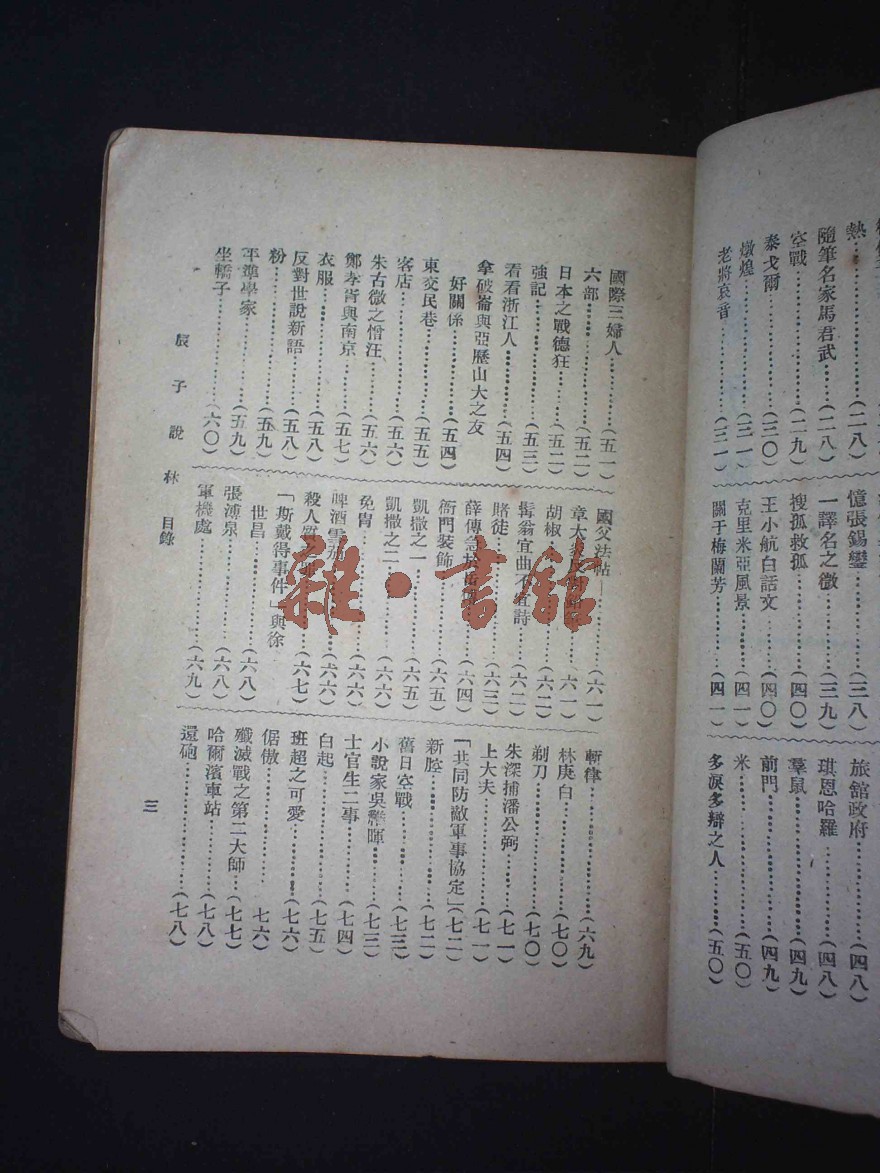 熱……(二八)
隨筆名家馬君武……(二八)
空戰……(二九)
泰戈爾……(三〇)
燉煌……(三一)
老將哀音……(三一)
憶張錫鑾……(三八)
一譯名之微……(三九)
搜孤救孤……(四〇)
王小航白話文……(四〇)
克里米亞風景……(四一)
關于梅蘭芳……(四一)
旅舘政府……(四八)
琪恩哈羅……(四八)
羣鼠……(四九)
前門……(四九)
米……(五〇)
多淚多辯之人……(五〇)
國際三婦人……(五一)
六部……(五二)
日本之戰德狂……(五二)
強記……(五三)
看看浙江人……(五四)
拿破崙與亞歷山大之友
好關係……(五四)
東交民巷……(五五)
客店……(五六)
朱古微之憎汪……(五六)
鄭孝胥與南京……(五七)
衣服……(五八)
反對世說新語……(五八)
粉……(五九)
平準學家……(五九)
坐轎子……(六〇)
國父法帖……(六一)
章太炎……(六一)
胡椒……(六二)
髯翁宜曲不宜詩……(六二)
賭徒……(六三)
薛傳……(六四)
衙門裝飾……(六五)
凱撒之一……(六五)
凱撒之二……(六六)
免冑……(六六)
啤酒……(六六)
殺人……(六七)
「斯戴得事件」與徐
世昌……(六八)
張溥泉……(六八)
軍機處……(六九)
斬律……(六九)
林庚白……(七〇)
剃刀……(七〇)
朱深捕潘公弼……(七一)
上大夫……(七一)
「共同防敵軍事協定」(七二)
新腔……(七二)
舊日空戰……(七三)
小說家吳稚暉……(七三)
士官生二事……(七四)
白起……(七五)
班超之可愛……(七六)
倨傲……七六)
殲滅戰之第二大師……(七七)
哈爾濱車站……(七八)
還砲……(七八)
辰子說林 目錄
三
雜·書舘